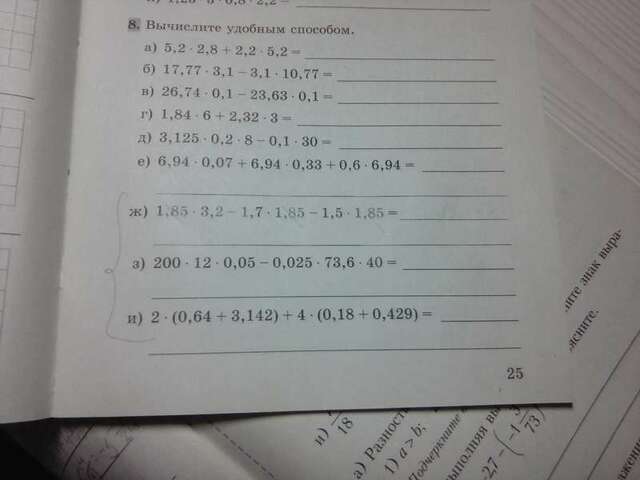 1,25 · 5 · 0,8 · 2,2 =
8. Вычислите удобным способом.
а) 5,2 · 2,8 + 2,2 · 5,2 =
б) 17,77 · 3,1 – 3,1 · 10,77 =
в) 26,74 · 0,1 – 23,63 · 0,1 =
г) 1,84 · 6 + 2,32 · 3 =
д) 3,125 · 0,2 · 8 – 0,1 · 30 =
е) 6,94 · 0,07 + 6,94 · 0,33 + 0,6 · 6,94 =
ж) 1,85 · 3,2 – 1,7 · 1,85 – 1,5 · 1,85 =
з) 200 · 12 · 0,05 – 0,025 · 73,6 · 40 =
и) 2 · (0,64 + 3,142) + 4 · (0,18 + 0,429) =
25
ите знак выра-
ясните.
и) 18
а) Разность
1) a > b;
Подчеркните
ыполняя вы